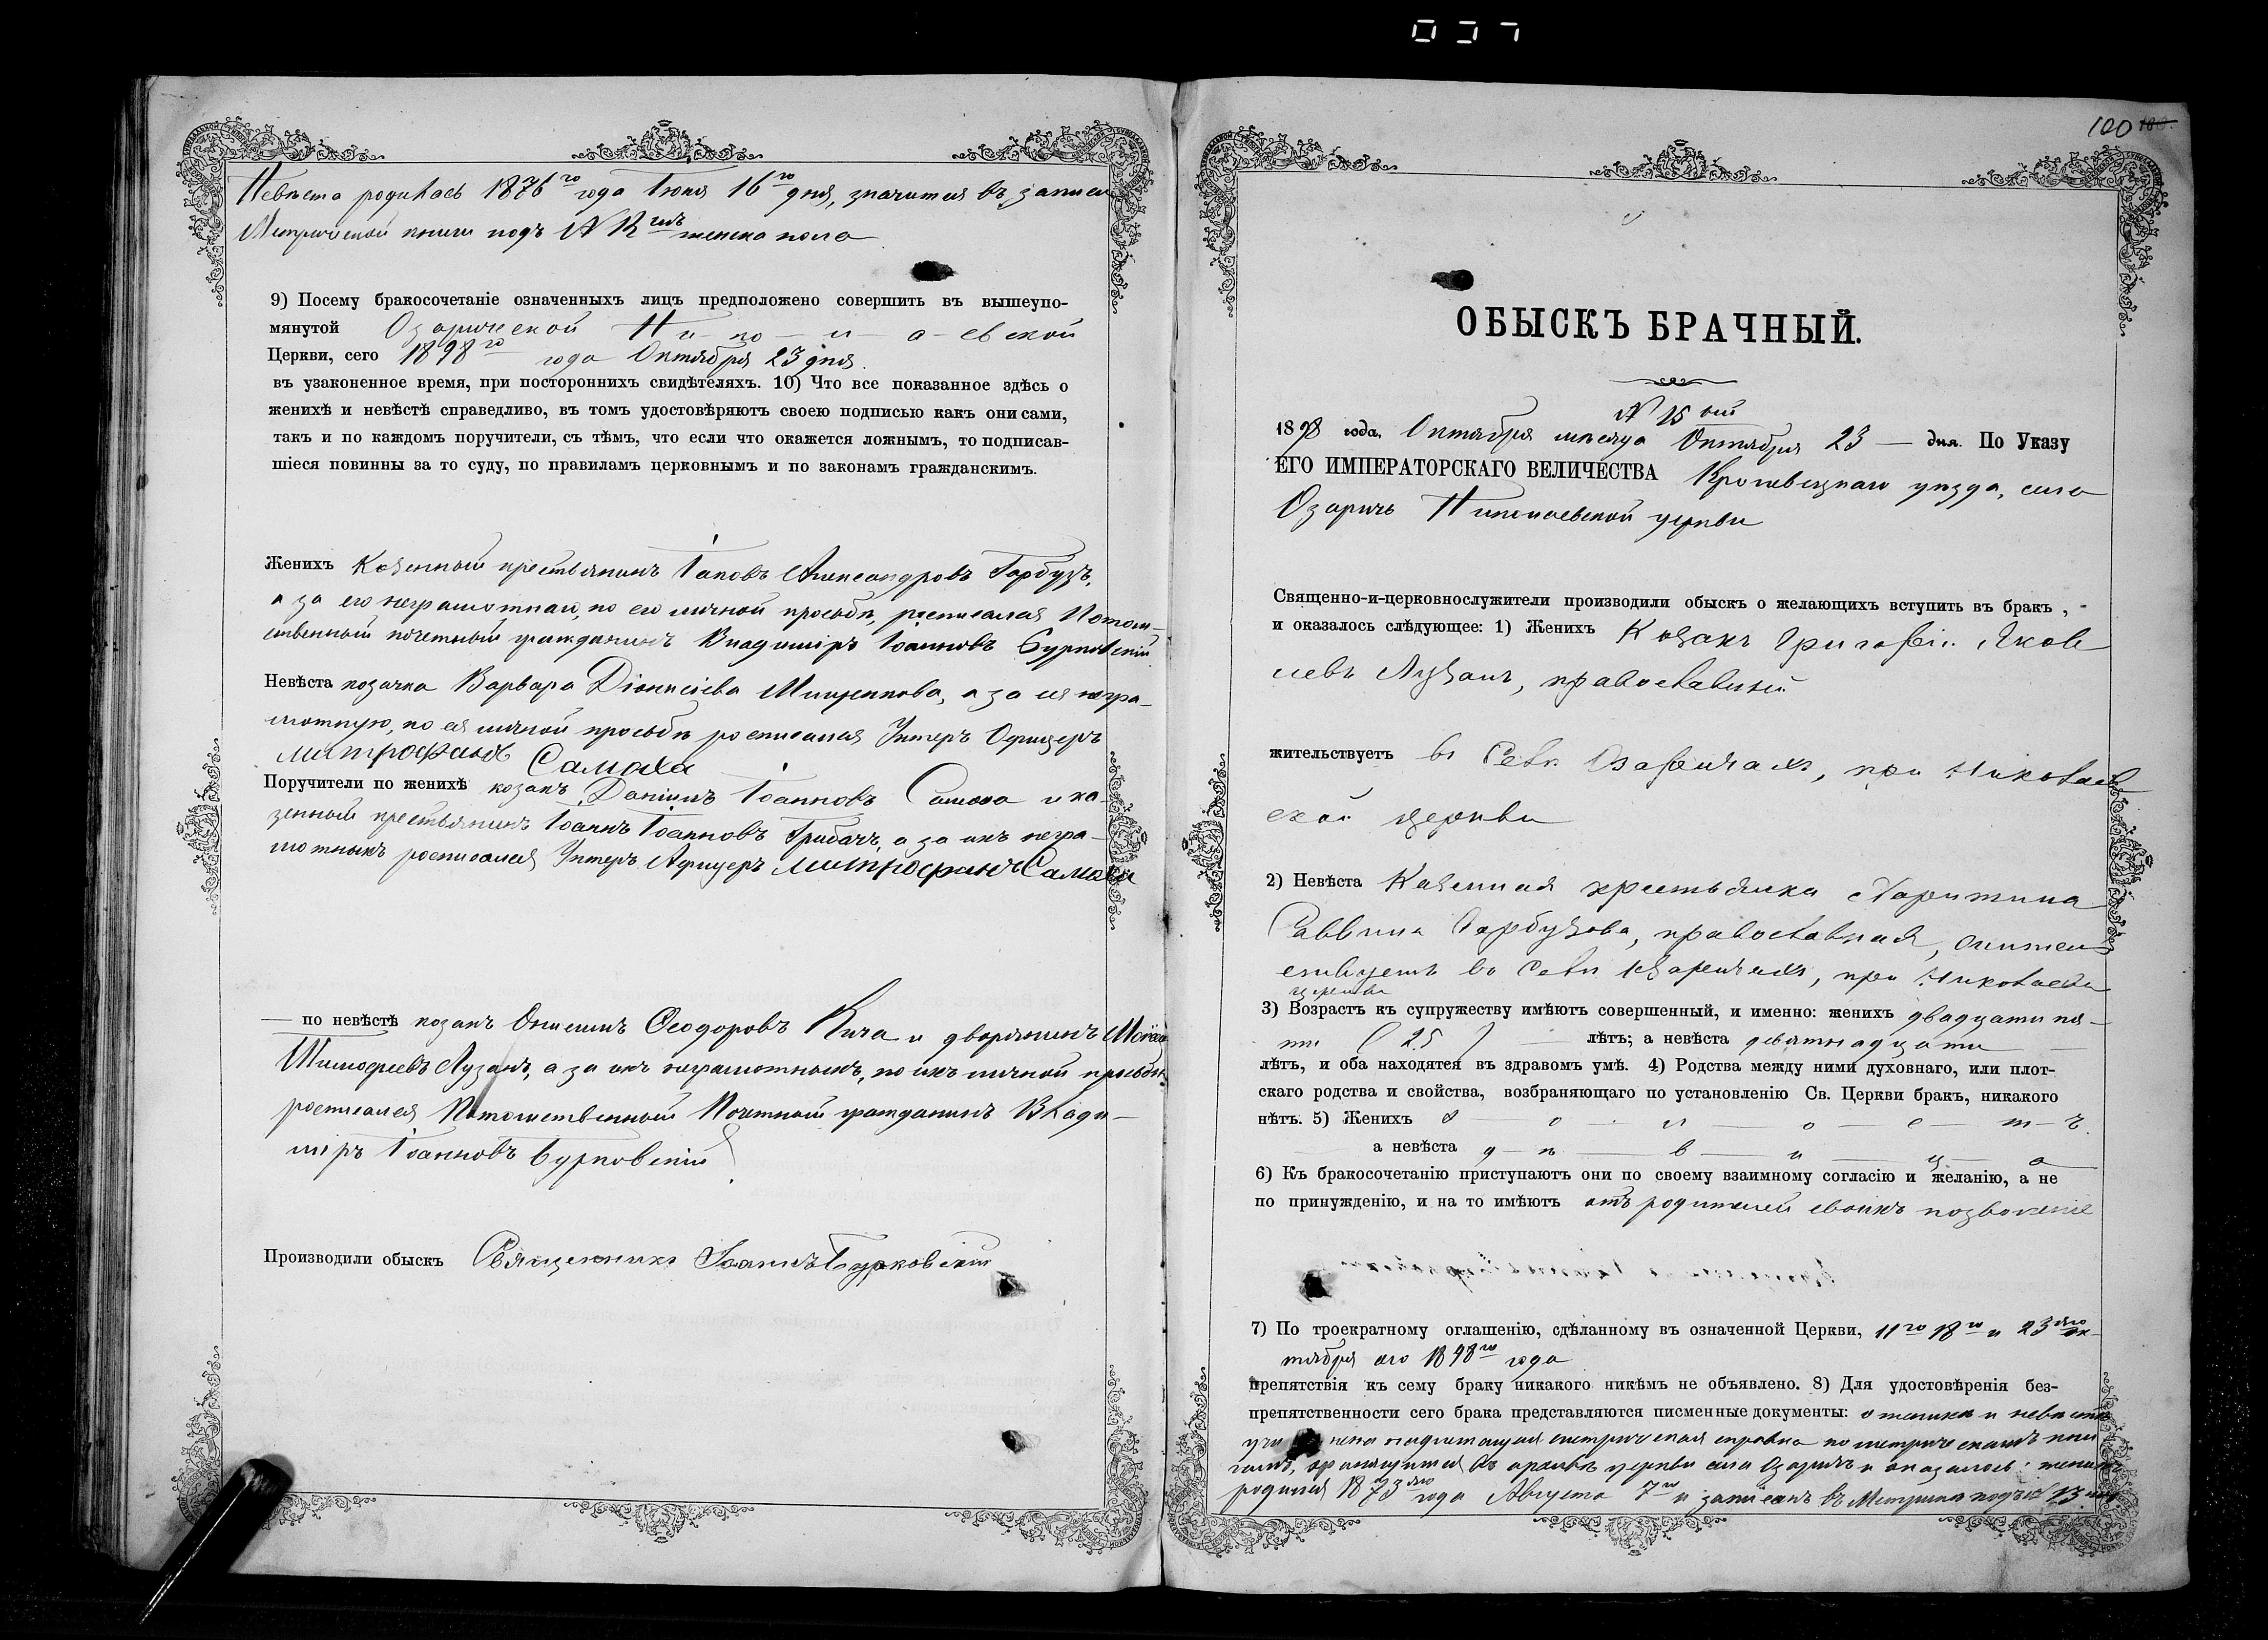 037
Невѣста родилась 1876го года Іюня 16го дня, значится въ записи
Метрической книги подъ № 12 женска пола
9) Посему бракосочетаніе означенныхъ лицъ предположено совершить въ вышеупо-
мянутой Озарической Н-и-ко-л-а-евской
Церкви, сего 1898го года Октября 23 дня.
въ узаконенное время, при постороннихъ свидѣтеляхъ. 10) Что все показанное здѣсь о
женихѣ и невѣстѣ справедливо, въ томъ удостовѣряютъ своею подписью какъ они сами,
такъ и по каждомъ поручители, съ тѣмъ, что если что окажется ложнымъ, то подписав-
шіеся повинны за то суду, по правиламъ церковнымъ и по законамъ гражданскимъ.
Женихъ Казенный крестьянинъ Іаковъ Александровъ Гарбузъ,
а за его неграмотнаго, по его личной просьбѣ, росписался Потом-
ственный почетный гражданинъ Владиміръ Іоанновъ Бурковскій
Невѣста козачка Варвара Діонисіева Мищенкова, а за ея негра-
мотную, по ея личной просьбѣ росписался Унтеръ Офицеръ
Митрофанъ Самоха
Поручители по женихѣ козакъ Даніилъ Іоанновъ Самоха и ка-
зенный крестьянинъ Іоаннъ Іоанновъ Грибачъ, а за ихъ негра-
мотныхъ росписался Унтеръ Афицеръ Митрофанъ Самоха
— по невѣстѣ козакъ Онисимъ Ѳеодоровъ Кича и дворянинъ
Тимофеевъ Лузанъ, а за ихъ неграмотныхъ, по ихъ личной просьбѣ
росписался Потомственный Почтный гражданинъ Влади-
міръ Іоанновъ Бурковскій
Производили обыскъ Священникъ Іоаннъ Бурковскій
100 100.
ОБЫСКЪ БРАЧНЫЙ.
№ 15 ый
1898 года, Октября мѣсяца Октября 23 — дня. По Указу
ЕГО ИМПЕРАТОРСКАГО ВЕЛИЧЕСТВА Кролевецкаго уѣзда, села
Озаричъ Николаевской церкви
Священно-и-церковнослужители производили обыскъ о желающихъ вступить въ бракъ,
и оказалось слѣдующее: 1) Женихъ Козакъ Григорій Яков
левъ Лузанъ, православный
жительствуетъ въ Селѣ Озаричахъ, при Николаев
ской церкви
2) Невѣста Казенная крестьянка Харитина
Саввина Гарбузова, православная, жител
ствуетъ въ Селѣ Озаричахъ, при Николаевс
церкви
3) Возрастъ къ супружеству имѣютъ совершенный, и именно: женихъ двадцати пя-
ти (25) лѣтъ; а невѣста девятнадцати
лѣтъ, и оба находятся въ здравомъ умѣ. 4) Родства между ними духовнаго, или плот-
скаго родства и свойства, возбраняющаго по установленію Св. Церкви бракъ, никакого
нѣтъ. 5) Женихъ х — о — л — о — с — т — ъ.
а невѣста д — ѣ — в — и — ц — а
6) Къ бракосочетанію приступаютъ они по своему взаимному согласію и желанію, а не
по принужденію, и на то имѣютъ отъ родителей своихъ позволеніе
7) По троекратному оглашенію, сдѣланному въ означенной Церкви, 11го 18го и 23 Ок-
тября сего 1898го года
препятствія къ сему браку никакого никѣмъ не объявлено. 8) Для удостовѣренія без-
препятственности сего брака представляются писменные документы: о женихѣ и невѣстѣ
учи нена надлежащая метрическая справка по метрическимъ кни
гамъ, хранящимся въ архивѣ церкви села Озаричъ и оказалось: женихъ
родился 1873 года Августа 7го и записанъ въ Метрикѣ подъ № 13